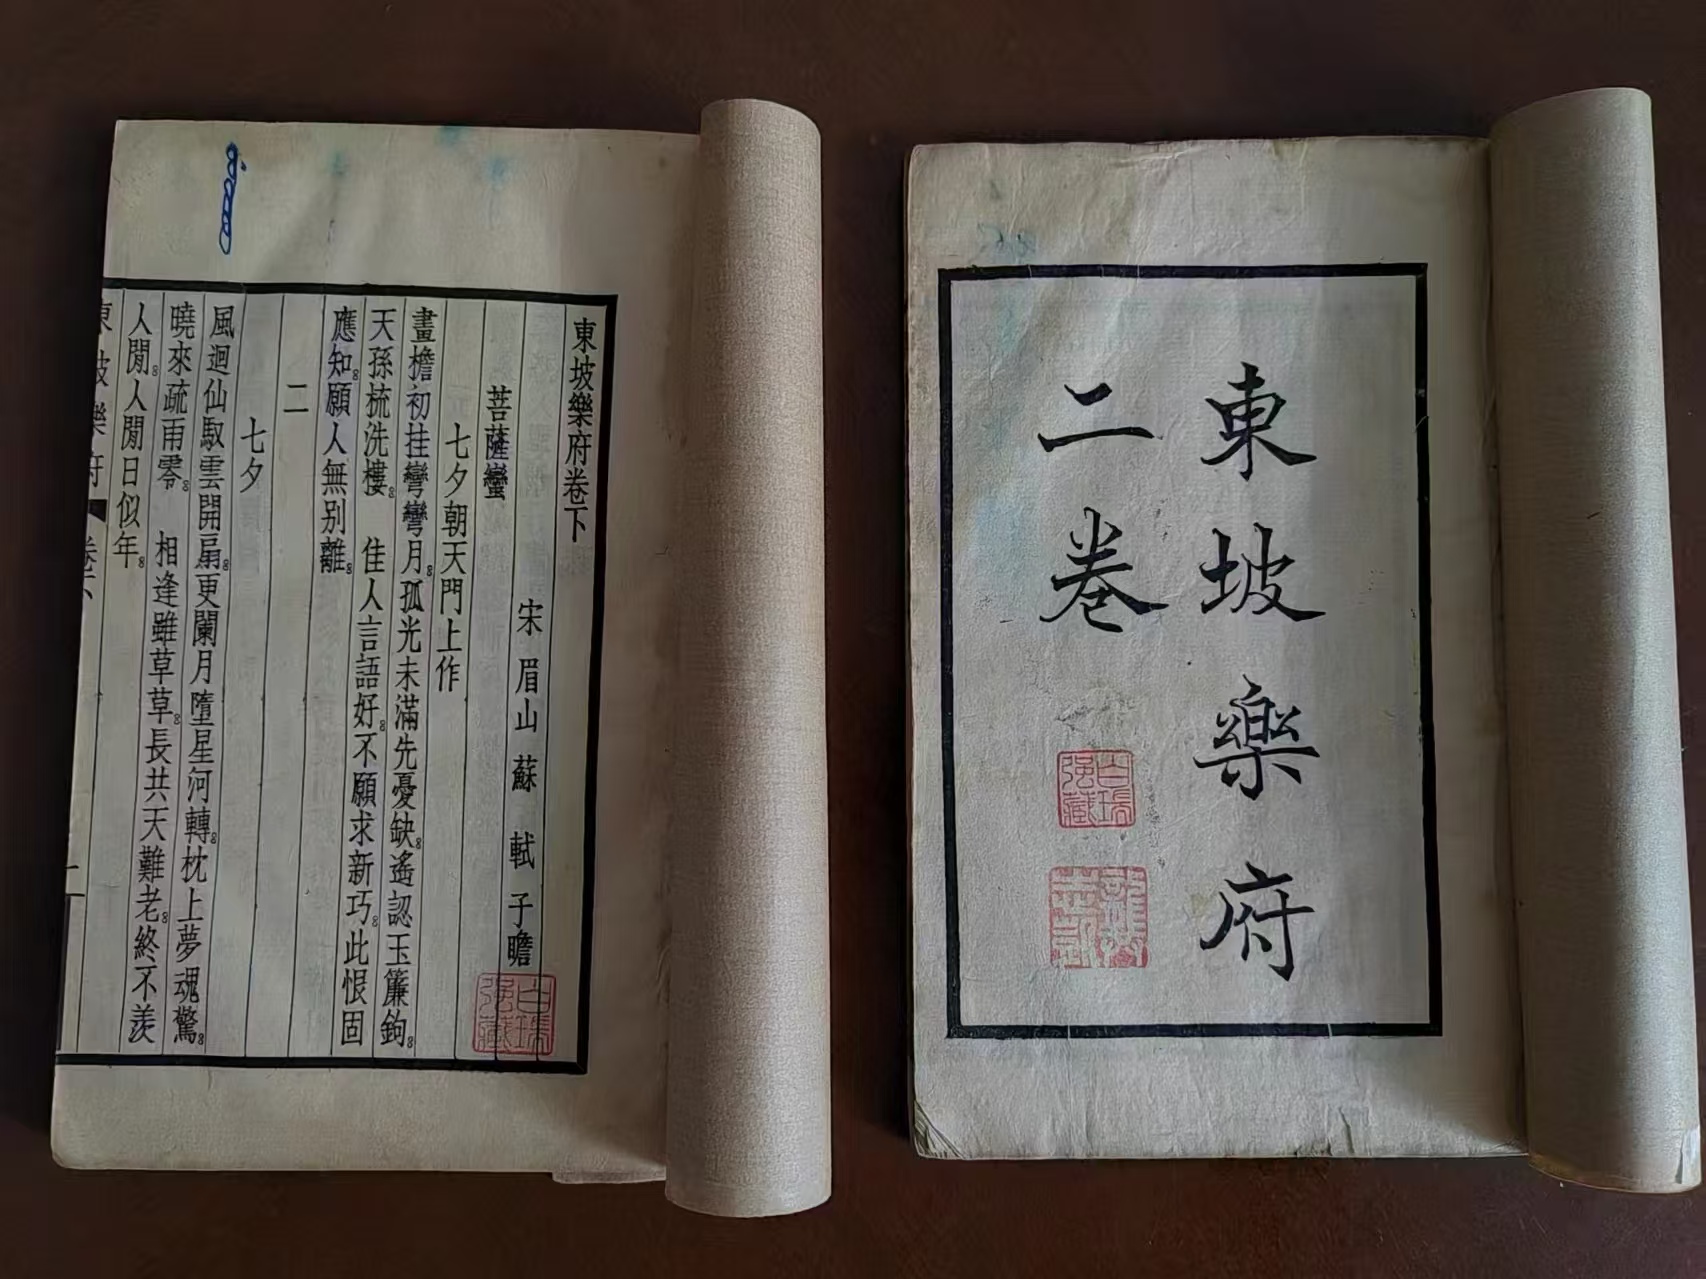 東坡樂府
二卷
白瑞
强藏
東坡樂府卷下
宋眉山蘇軾子瞻
白瑞
强藏
菩薩蠻
七夕朝天門上作
畫檐初挂彎彎月。孤光未滿先憂缺。遙認玉簾鉤。
天孫梳洗樓。佳人言語好。不願求新巧。此恨固
應知。願人無别離。
二
七夕
風迴仙馭雲開扇。更闌月墮星河轉。枕上夢魂驚。
曉來疏雨零。相逢雖草草。長共天難老。終不羨
人閒。人閒日似年。
東坡樂府 卷下